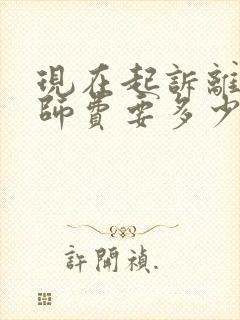 現在起訴離
師費要多少
許開禎.